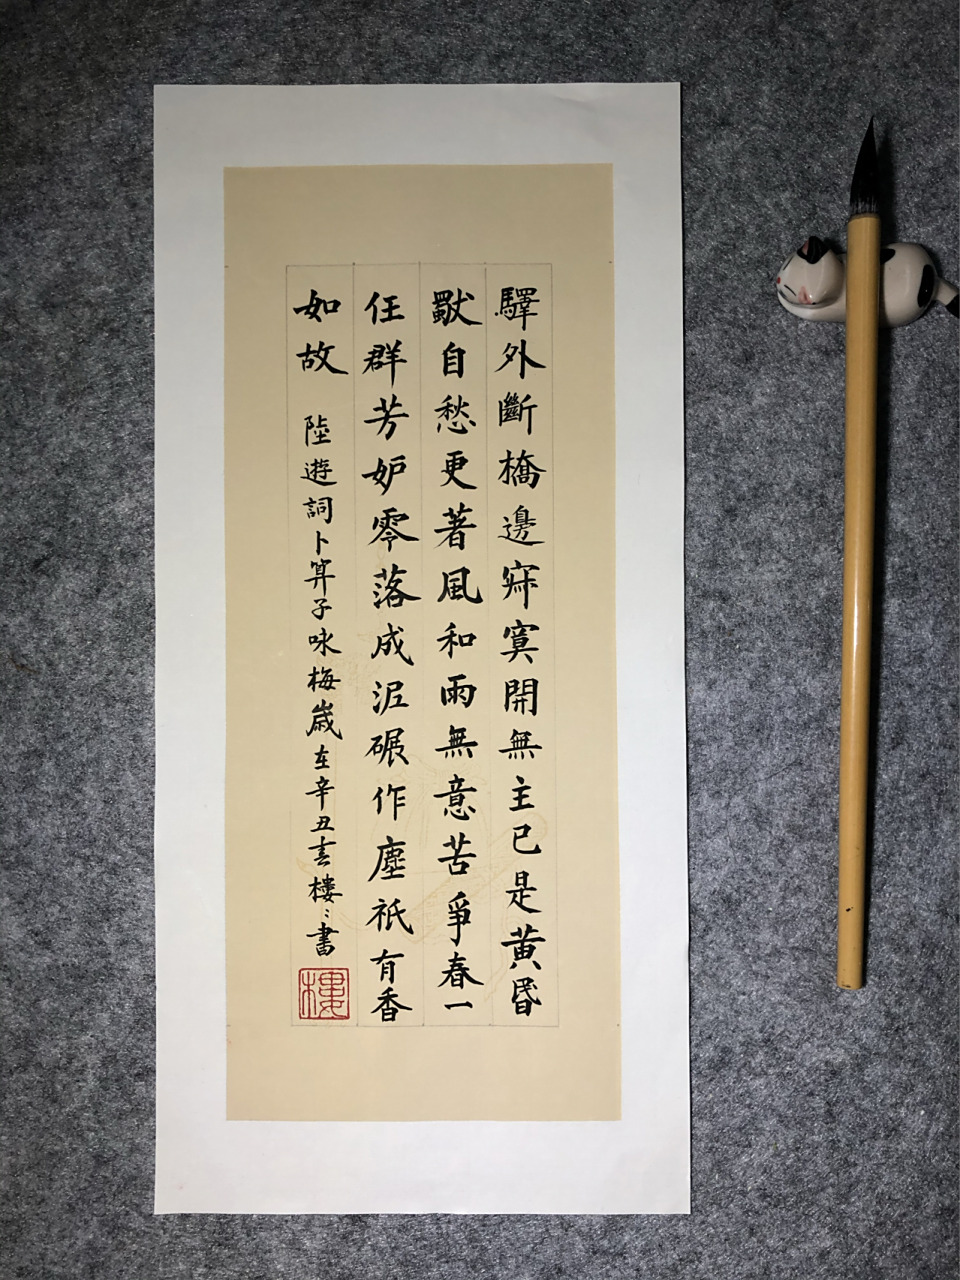 驛外斷橋邊寂寞開無主已是黃昬
獨自愁更著風和雨無意苦爭春一
任群芳妒零落成泥碾作塵祇有香
如故 陸遊詞卜算子咏梅歲在辛丑樓〻書
樓